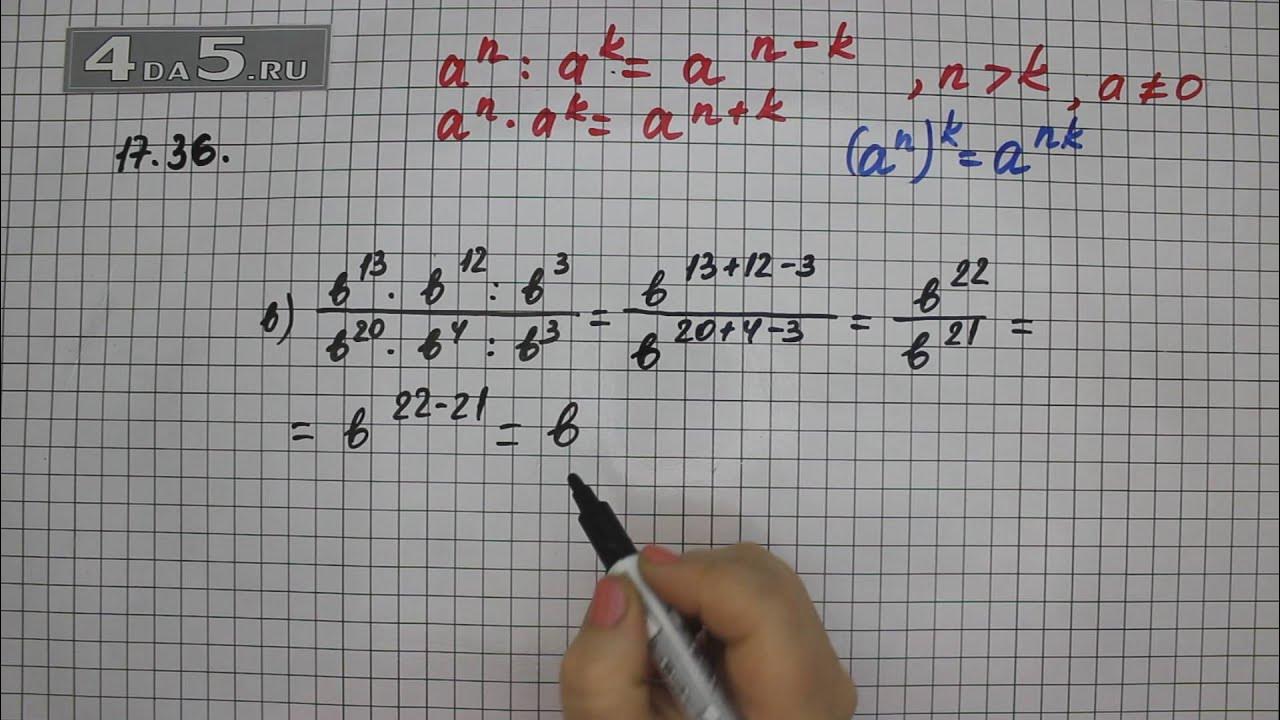 4DA5.RU
aⁿ : aᵏ = a ⁿ⁻ᵏ , n > k, a ≠ 0
aⁿ · aᵏ = aⁿ⁺ᵏ
(aⁿ)ᵏ = aⁿᵏ
17.36.
в) (в¹³ · в¹² : в³)/(в²⁰ · в⁴ : в³) = (в¹³⁺¹²⁻³)/(в²⁰⁺⁴⁻³) = в²²/в²¹ =
= в²²⁻²¹ = в